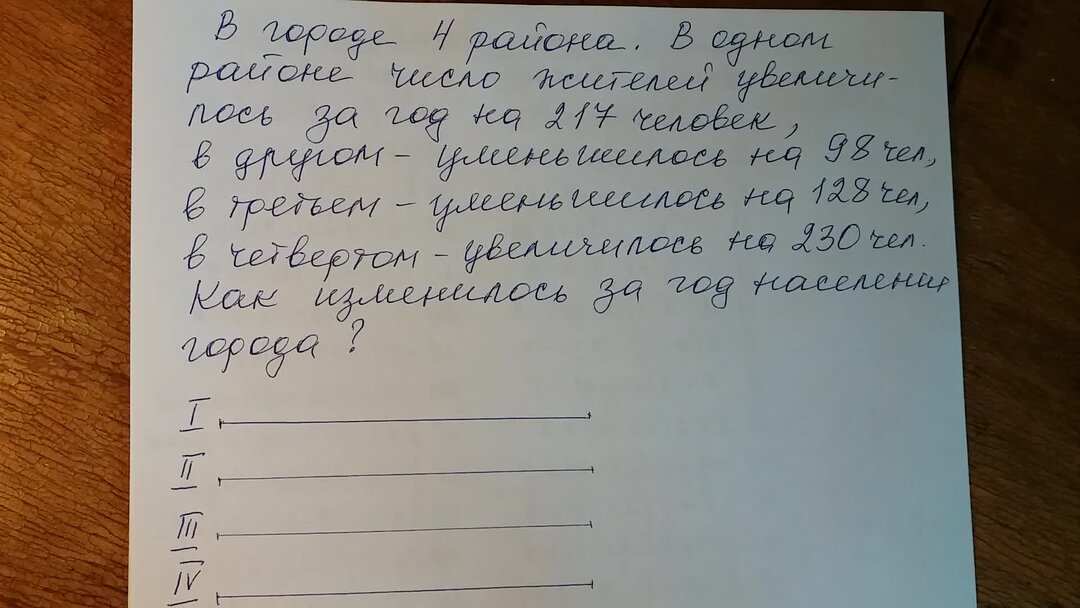 В городе 4 района. В одном
районе число жителей увеличи-
лось за год на 217 человек,
в другом - уменьшилось на 98 чел,
в третьем - уменьшилось на 128 чел,
в четвертом - увеличилось на 230 чел.
Как изменилось за год население
города?
I
II
III
IV